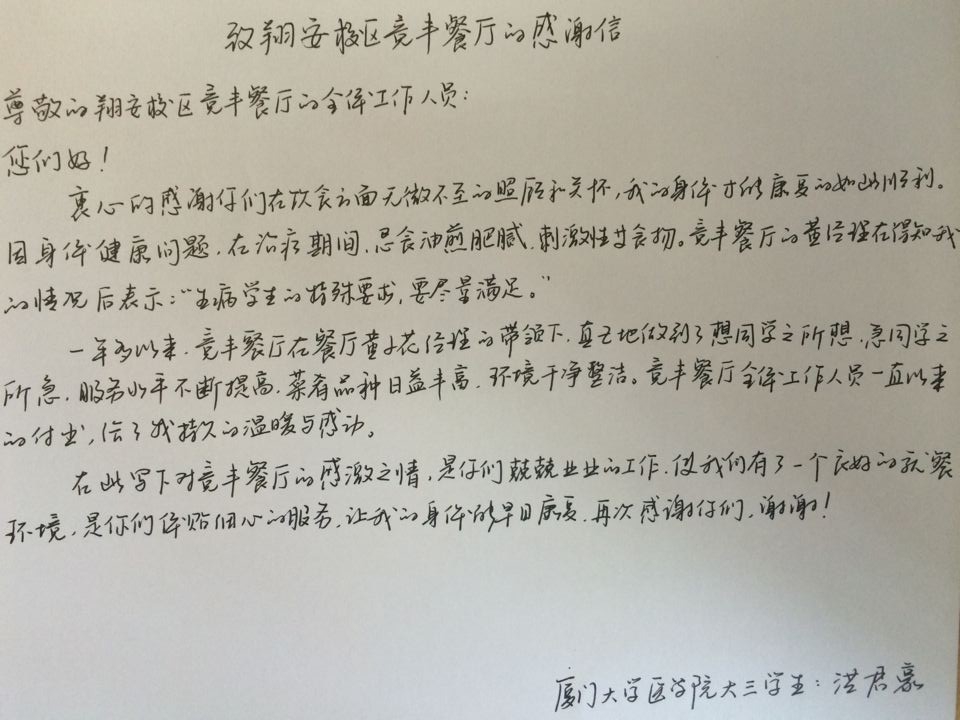 致翔安校区竞丰餐厅的感谢信
尊敬的翔安校区竞丰餐厅的全体工作人员：
您们好！
衷心的感谢你们在饮食方面无微不至的照顾和关怀，我的身体才能康复的如此顺利。
因身体健康问题，在治疗期间，忌食油煎肥腻、刺激性艾食物。竞丰餐厅的黄经理在得知我
的情况后表示：“生病学生的特殊要求，要尽量满足。”
一年多以来，竞丰餐厅在餐厅黄花经理的带领下，真正地做到了想同学之所想，急同学之
所急，服务水平不断提高，菜肴品种日益丰富，环境干净整洁。竞丰餐厅全体工作人员一直以来
的付出，给了我持久的温暖与感动。
在此写下对竞丰餐厅的感激之情，是你们兢兢业业的工作，使我们有了一个良好的就餐
环境，是你们体贴细心的服务，让我的身体能早日康复，再次感谢你们，谢谢！
厦门大学医学院大三学生：洪君豪